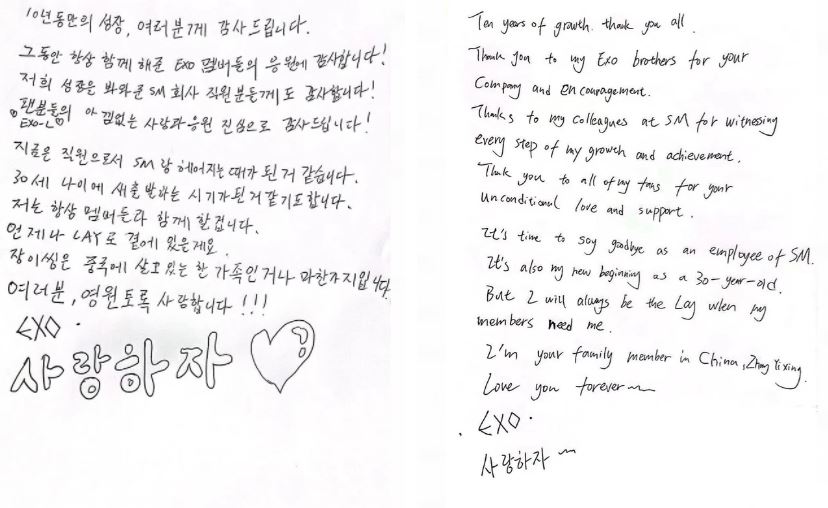 10년동안의 성장, 여러분께 감사드립니다.
그동안 항상 함께 해준 EXO 멤버들의 응원에 감사합니다!
저희 성장은 봐와준 SM 회사 직원분들께도 감사합니다!
팬분들의 아낌없는 사랑과응원 진심으로 감사드립니다!
EXO-L
지금은 직원으로서 SM랑 헤어지는때가 된거 같습니다.
30세 나이에 새출발하는 시기가된거같기도합니다.
저는 항상 멤버들과 함께할겁니다.
언제나 LAY로 곁에 있을게요.
장이씽은 중국에 살고있는 한 가족인거나 마찬가지입니다.
여러분, 영원토록 사랑합니다!!!
EXO.
사랑하자
Ten years of growth. thank you all.
Thank you to my Exo brothers for your
Company and encouragement.
Thanks to my colleagues at SM for witnessing
every step of my growth and achievement.
Thank you to all of my fans for your
unconditional love and support.
It's time to say goodbye as an employee of SM.
It's also my new beginning as a 30-year-old.
But I will always be the Lay when my
members need me.
I'm your family member in China, Zhang Yixing.
Love you forever~
EXO.
사랑하자~